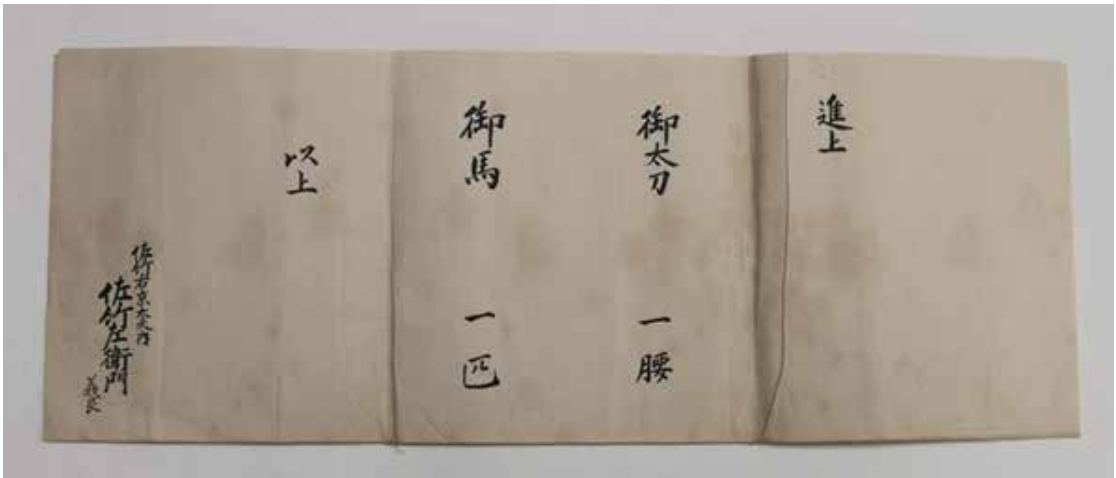 進上
御太刀 一腰
御馬 一匹
以上
佐竹右京大夫内
佐竹左衛門
義良